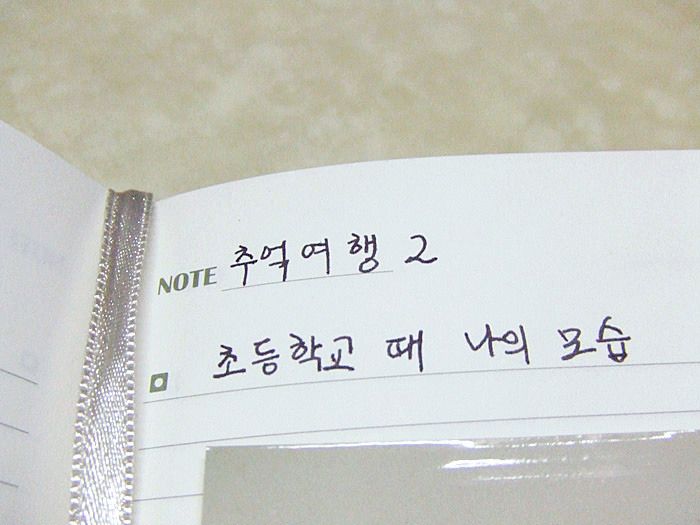 NOTE 추억여행 2
초등학교 때 나의 모습